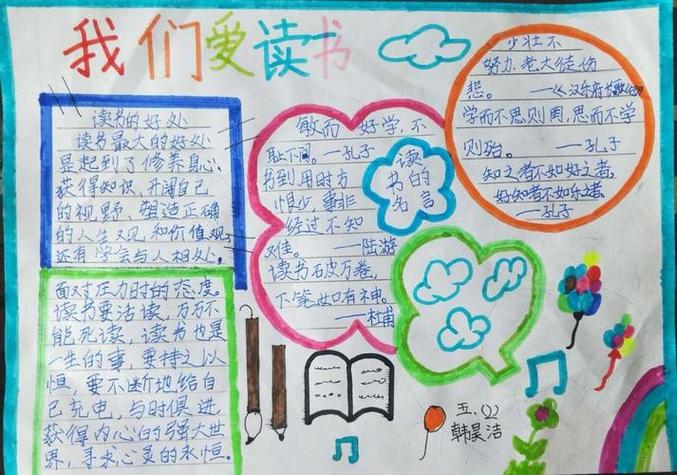 我们爱读书
读书的好处
读书最大的好处
是起到了修养身心,
获得知识,开阔自己
的视野,塑造正确
的人生观和价值观,
还有学会与人相处,
面对压力时的态度。
读书要活读,万万不
能死读,读书也是
一生的事,要持之以
恒,要不断地给自
己充电,与时俱进,
获得内心的强大世
界,寻求心灵的永恒。
敏而好学,不
耻下问。—孔子
书到用时方
恨少,事非
经过不知
难。—陆游
读书破万卷,
下笔如有神。
—杜甫
读
书的
名言
少壮不
努力,老大徒伤
悲。—《汉乐府·长歌行》
学而不思则罔,思而不学
则殆。—孔子
知之者不如好之者,
好知者不如乐之者。
—孔子
五.
韩昊洁